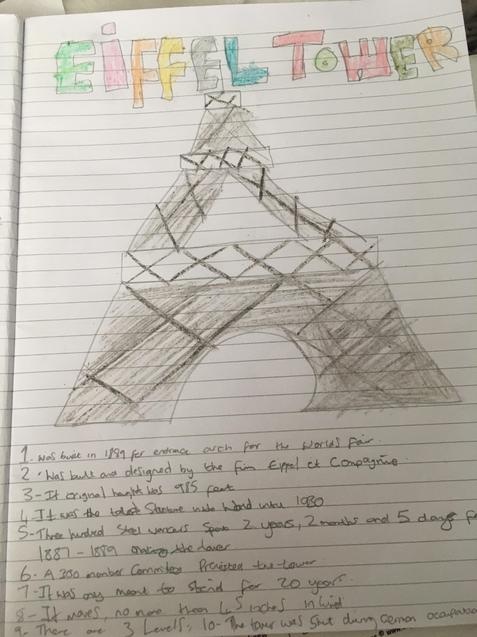 EIFFEL TOWER
1. was built in 1889 for entrace arch for the worlds fair
2 Was built and designed by the firm Eiffel et Compagnie.
3-It original height was 985 feet
4. It was the tallest Structure in the World until 1930
5-Three hundred Steel workers Spent 2 years, 2 months and 5 days
1887-1889 the tower
6. A 300 member Committee Protested the tower
7-It was only meant to Stand for 20 years.
8-It moves, no more than 4.5 inches in Wind
9. There are 3 Levels: 10-The tower was Shut during German